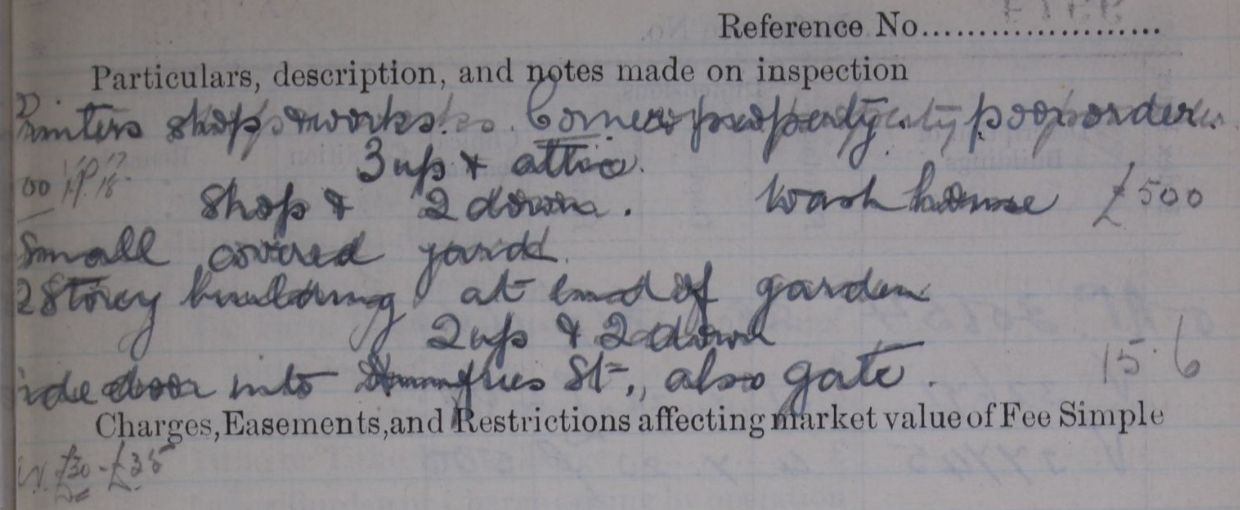 Reference No.....................
Particulars, description, and notes made on inspection
Printers shop & works. Corner property poor order
3 up & attic.
Shop & 2 down. Wash house £500
Small covered yard.
2 Storey building at end of garden
2 up & 2 down
ide door into St=, also gate. 15.6
Charges, Easements, and Restrictions affecting market value of Fee Simple
£30 - £35